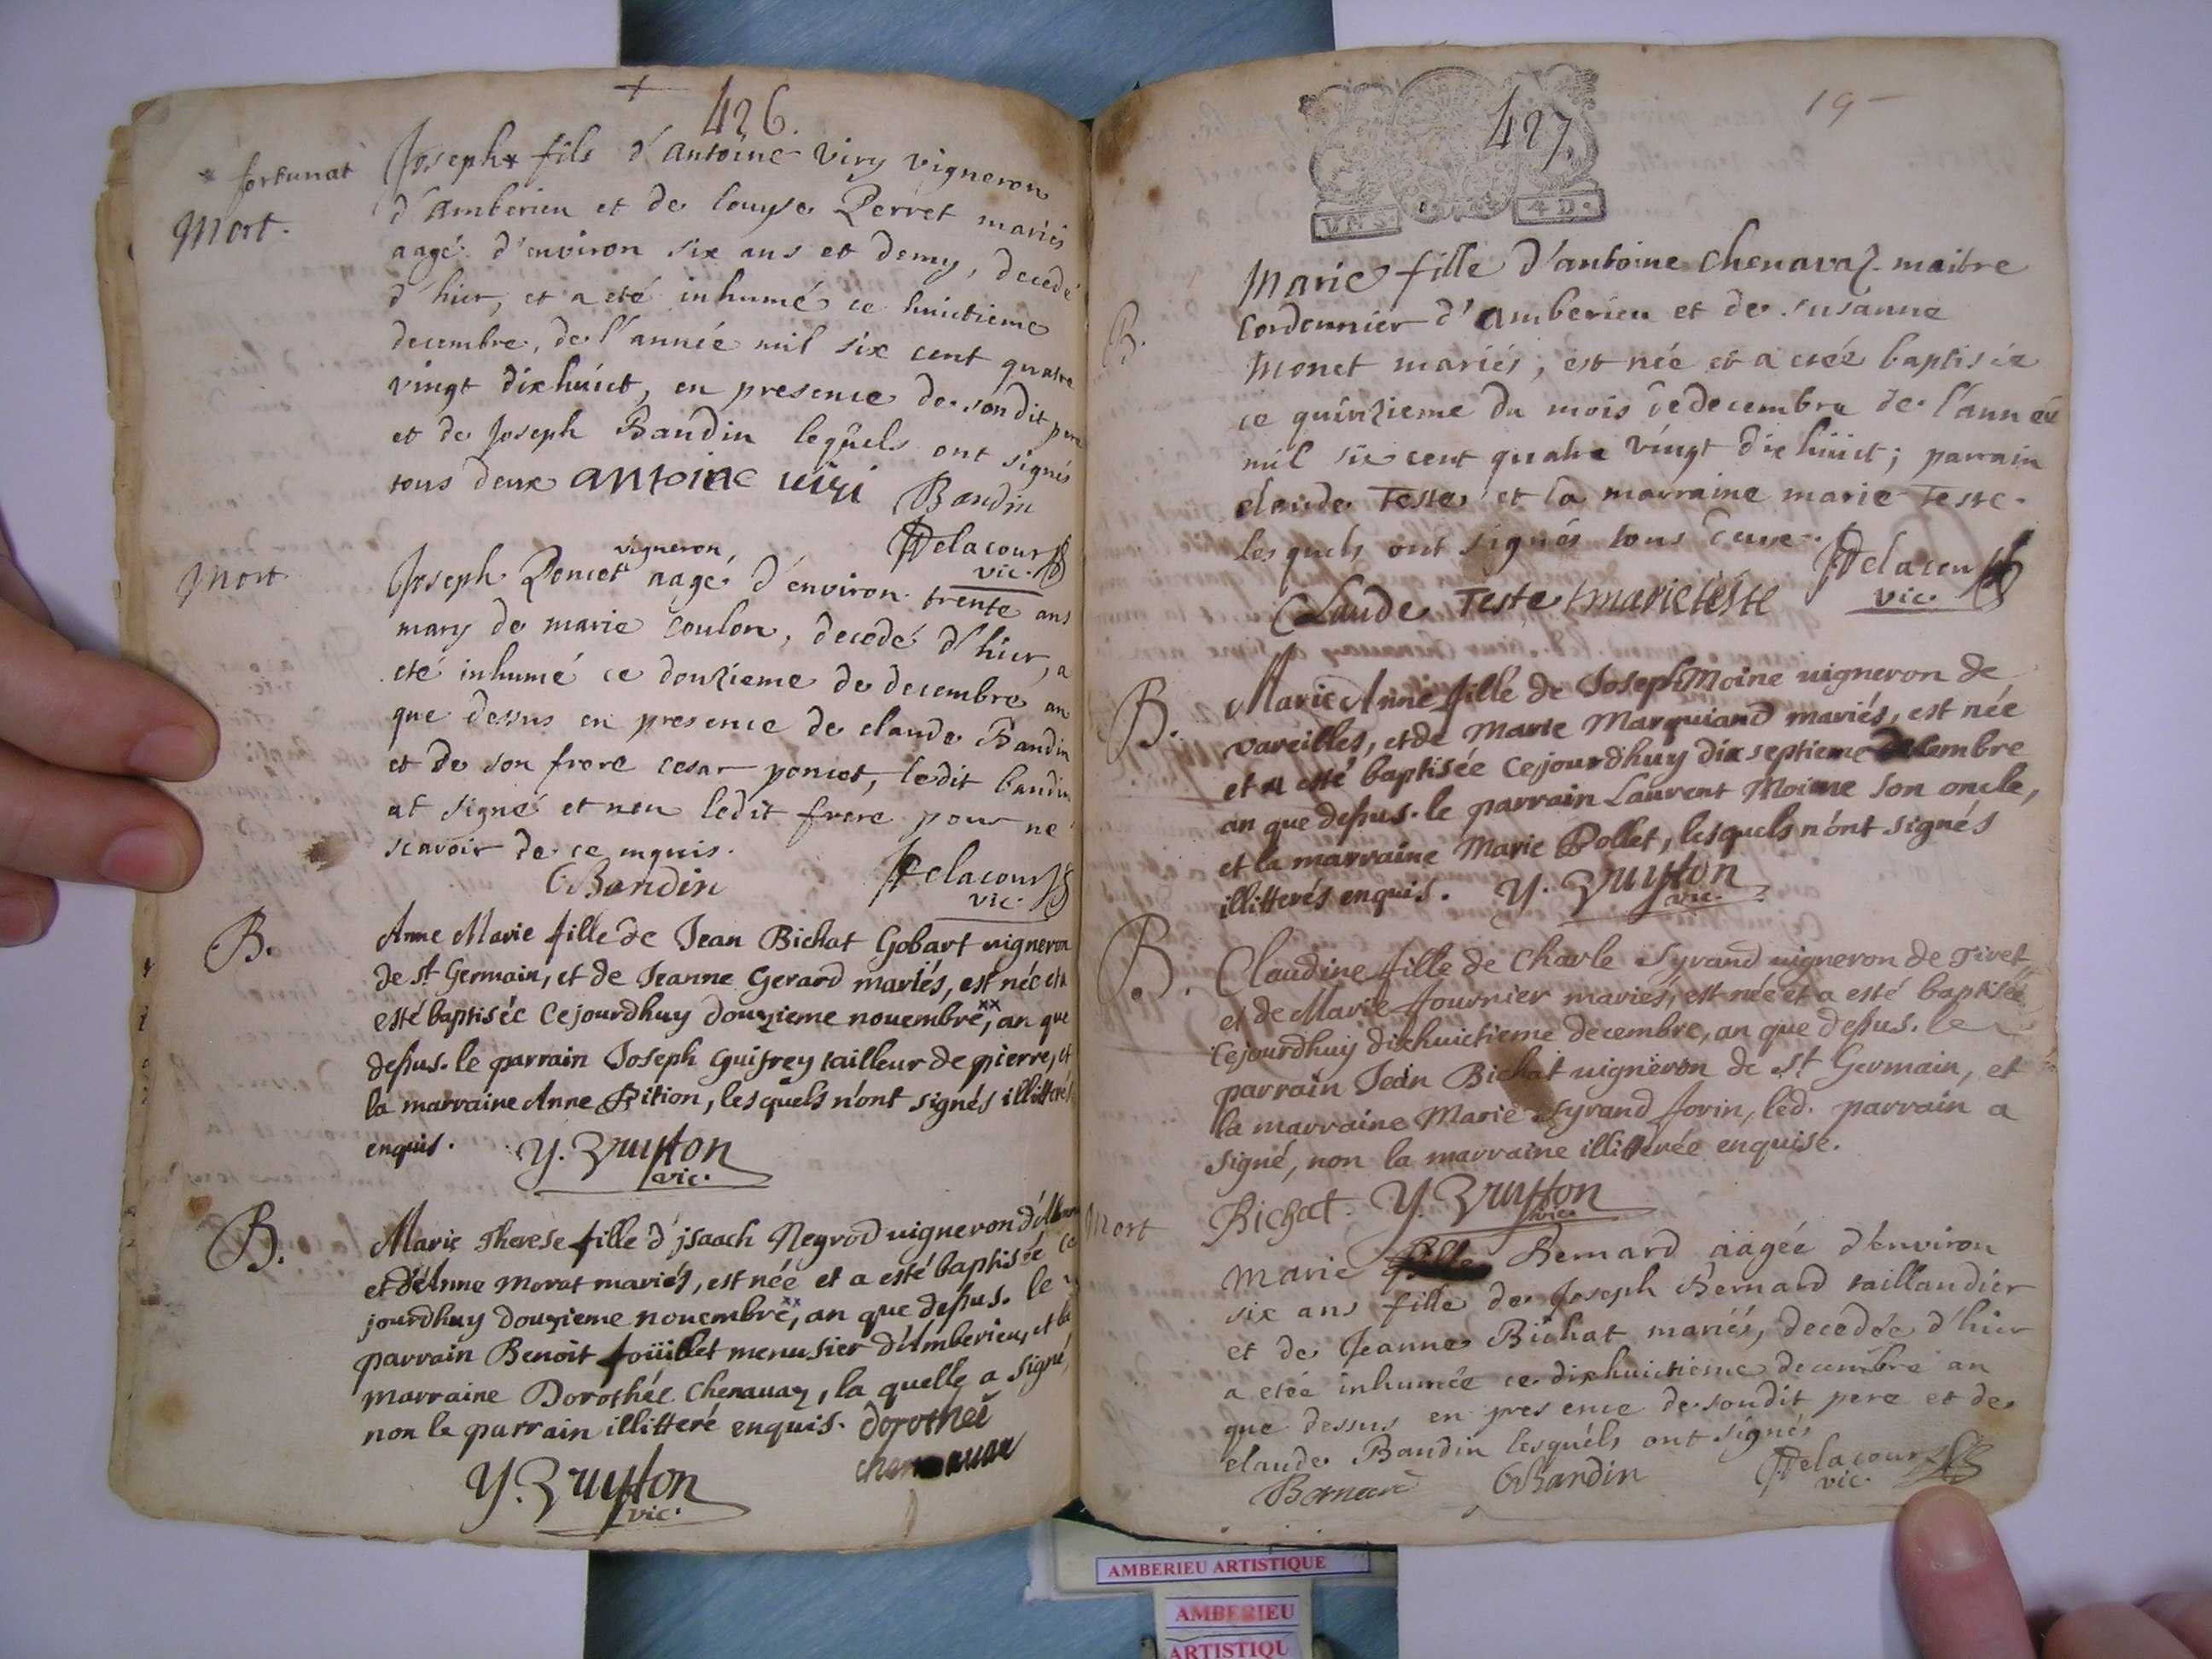 +
426.
* fortunat
Mort.
Joseph* fils d'antoine viry vigneron
d'Amberieu et de louyse Perret mariés
aagé d'environ six ans et demy, decedé
d'hier, et a eté inhumé ce huictieme
decembre, de l'année mil six cent quatre
vingt dixhuict, en presence de son dit pere
et de Joseph Baudin lequels ont signés
tous deux antoine viri Baudin
Delacour
vic.
Mort
vigneron,
Joseph Poncet aagé d'environ trente ans
mary de marie coulon, decedé d'hier, a
eté inhumé ce douzieme de decembre an
que dessus en presence de claude Baudin
et de son frere cesar poncet, ledit baudin
at signé et non ledit frere pour ne
scavoir de ce enquis.
CBaudin Delacour
vic.
B.
Anne Marie fille de Jean Bichat Gobart vigneron
de st Germain, et de Jeanne Gerard mariés, est née et a
esté baptisée Cejourdhuy douzieme novembre,xx an que
dessus. le parrain Joseph Guifrey tailleur de pierre, et
la marraine Anne Pition, lesquels n'ont signés illitterés
enquis. Y. Zuyston
vic.
B.
Marie Therese fille d'jsaach Neyrod vigneron
et d'Anne Morat mariés, est née et a esté baptisée ce
jourdhuy douzieme novembre,xx an que dessus. le
parrain Benoit foüillet menusier d'Amberieu, et la
marraine Dorothée Chenavaz, la quelle a signé,
non le parrain illitteré enquis. dorotheé
Y. Zuyston
vic.
427.
19
UN S. 4 D.
B.
Marie fille d'antoine Chenavaz maitre
Cordonnier d'Amberieu et de susanne
Monet mariés, est née et a etée baptisée
ce quinzieme du mois de decembre de l'année
mil six cent quatre vingt dix huict; parrain
claude Teste et la marraine marie Teste
lesquels ont signés tous deux. Delacour
vic.
Claude Teste marie teste
B.
Marie Anne fille de Joseph Moine vigneron de
vareilles, et de Marie Marquiand mariés, est née
et a esté baptisée Cejourdhuy dix septieme decembre
an que dessus. le parrain Laurent Moine son oncle,
et la marraine Marie Pollet, lesquels n'ont signés
illitterés enquis. Y. Zuyston
vic.
B.
Claudine fille de Charle Syrand vigneron de Tiret
et de Marie fournier mariés, est née et a esté baptisée
Cejourdhuy dixhuictieme decembre, an que dessus. le
parrain Jean Bichat vigneron de st Germain, et
la marraine Marie Syrand forin, led. parrain a
signé, non la marraine illitterée enquise.
Bichat. Y. Zuyston
vic.
Mort
Marie Bernard aagée d'environ
six ans fille de Joseph Bernard taillandier
et de Jeanne Bichat mariés, decedée d'hier
a etée inhumée ce dixhuictieme decembre an
que dessus en presence de soudit pere et de
claude Baudin lesquels ont signés
Bernard CBaudin Delacour
vic.
AMBERIEU ARTISTIQUE
AMBERIEU
ARTISTIQU